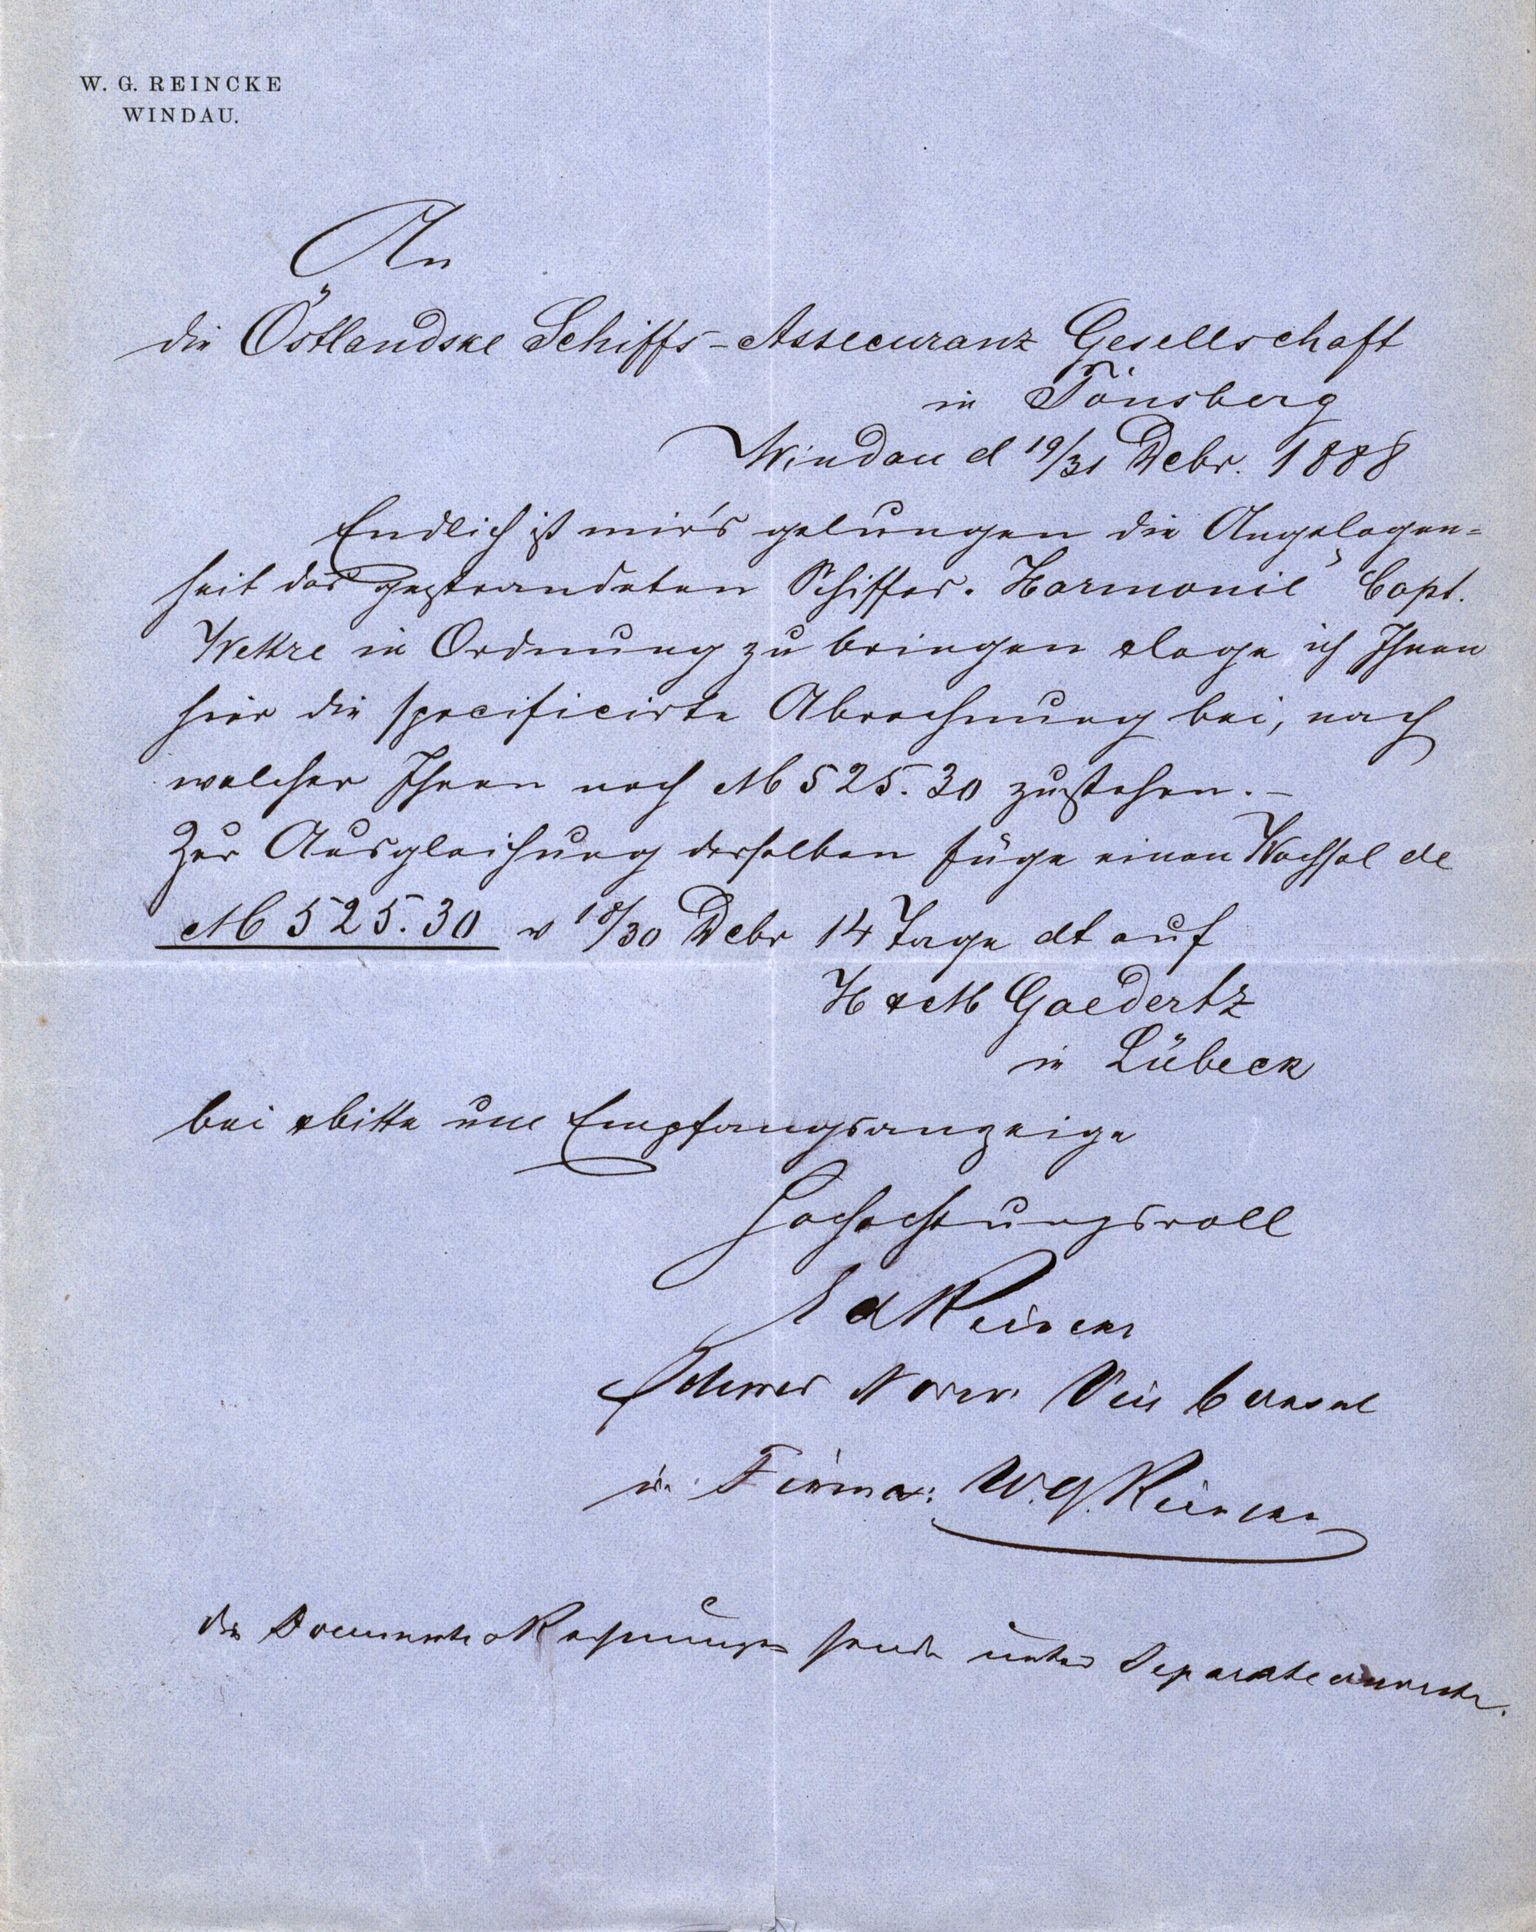 W. G. REINCKE
WINDAU.
An
die Östlandske Schiffs-Assecuranz Gesellschaft
in Tönsberg
Windau d 19/31 Debr. 1888
Endlich ist mir's gelungen die Angelegen=
heit des gestrandeten Schiffes „Harmonie" Capt.
Wettre in Ordnung zu bringen & lege ich Ihnen
hier die specificirte Abrechnung bei, nach
welcher Ihnen noch M 525.30 zustehen.-
Zur Ausgleichung derselben füge einen Wechsel de
M 525.30 v 18/30 Debr 14 Tage dt auf
H & M Gaedertz
in Lübeck
bei & bitte um Empfangsanzeige
Hochachtungsvoll
Ed Reincke
Schwed Norw. Vice Consul
in Firma: W.G. Reincke
die Documente & Rechnungen sende unter Separatcouverte.